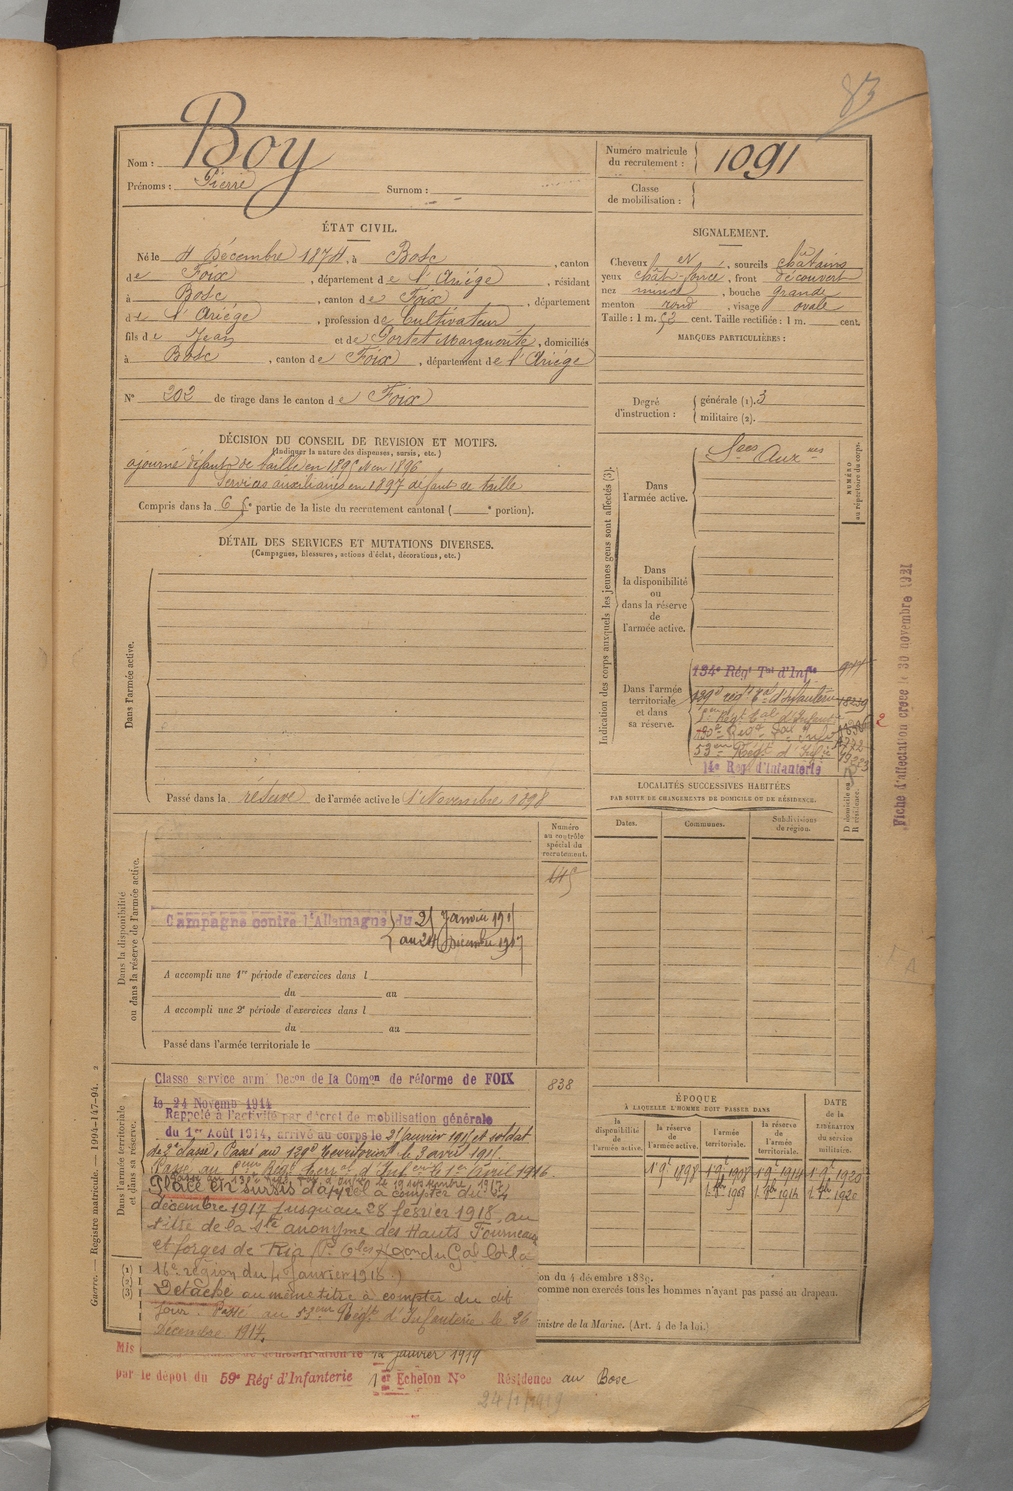 83
Nom : Boy
Prénoms : Pierre Surnom :
Numéro matricule du recrutement : 1091
Classe de mobilisation :
ÉTAT CIVIL.
Né le 4 Décembre 1874, à Bosc, canton
de Foix, département de l'Ariége, résidant
à Bosc, canton de Foix, département
de l'Ariége, profession de Cultivateur
fils de Jean et de Portet Marguerite, domiciliés
à Bosc, canton de Foix, département de l'Ariége
N° 202 de tirage dans le canton de Foix
SIGNALEMENT.
Cheveux et, sourcils châtains
yeux chât-foncé, front découvert
nez mince, bouche grande
menton rond, visage ovale
Taille : 1 m. 52 cent. Taille rectifiée : 1 m. cent.
MARQUES PARTICULIÈRES :
Degré d'instruction : générale (1). 3
militaire (2).
DÉCISION DU CONSEIL DE REVISION ET MOTIFS.
(Indiquer la nature des dispenses, sursis, etc.)
ajourné défaut de taille en 1895 et en 1896
Services auxiliaires en 1897 défaut de taille
Compris dans la 6e partie de la liste du recrutement cantonal ( e portion).
DÉTAIL DES SERVICES ET MUTATIONS DIVERSES.
(Campagnes, blessures, actions d'éclat, décorations, etc.)
Dans l'armée active.
Passé dans la réserve de l'armée active le 1 Novembre 1898
Indication des corps auxquels les jeunes gens sont affectés (3).
NUMÉRO au répertoire du corps.
Dans l'armée active.
Sces Auxres
Dans la disponibilité ou dans la réserve de l'armée active.
Dans l'armée territoriale et dans sa réserve.
134e Régt Tal d'Infie
139e régt Tal d'Infanterie
53ème Régt d'Infie
14e Rég d'Infanterie
Fiche d'affectation créée le 30 novembre 1921
LOCALITÉS SUCCESSIVES HABITÉES
PAR SUITE DE CHANGEMENTS DE DOMICILE OU DE RÉSIDENCE.
Dates. Communes. Subdivisions de région.
D domicile ou R résidence.
Dans la disponibilité ou dans la réserve de l'armée active.
Numéro au contrôle spécial du recrutement.
Campagne contre l'Allemagne du 25 Janvier 1915
au 24 Décembre 1917
A accompli une 1re période d'exercices dans l
du au
A accompli une 2e période d'exercices dans l
du au
Passé dans l'armée territoriale le
Dans l'armée territoriale et dans sa réserve.
Classé service armé Decon de la Comon de réforme de FOIX
838
le 24 Novemb 1914
Rappelé à l'activité par décret de mobilisation générale
du 1er Août 1914, arrivé au corps le 25 Janvier 1915 et soldat
de 2e classe. Passé au 139e Territorial le 3 avril 1915.
Passé au Régt Terral d'Infrie le 1er Avril 1916.
Placé en sursis d'appel à compter du 24
décembre 1917 jusqu'au 28 février 1918, au
titre de la Sté anonyme des Hauts Fourneaux
et forges de Ria
16e région du 4 Janvier 1918.)
Détaché au même titre à compter du dit
jour. Passé au 53ème Régt d'Infanterie le 26
Décembre 1917.
ÉPOQUE
À LAQUELLE L'HOMME DOIT PASSER DANS
la disponibilité de l'armée active. la réserve de l'armée active. l'armée territoriale. la réserve de l'armée territoriale.
DATE de la LIBÉRATION du service militaire.
1 9e 1898 1 9e 1908 1 9e 1914 1 9e 1920
ion du 4 décembre 1889.
comme non exercés tous les hommes n'ayant pas passé au drapeau.
inistre de la Marine. (Art. 4 de la loi.)
Guerre. — Registre matricule. — 1994-147-94. 2
(1)
(2)
(3)
Mis
janvier 1919
par le dépôt du 59e Régt d'Infanterie 1er Échelon N° Résidence au Bosc
24/1/1919